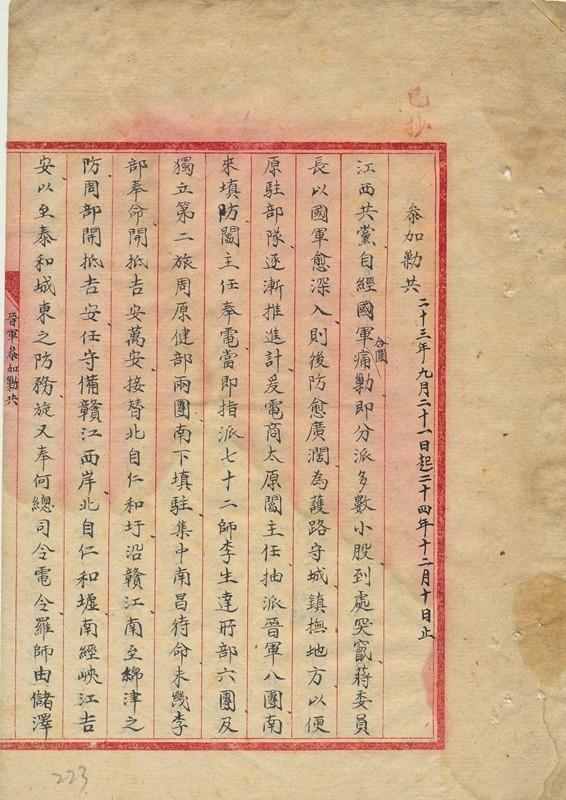 已抄
參加勦共 二十三年九月二十一日起二十四年十二月十日止
江西共黨自經國軍合圍痛勦即分派多數小股到處突竄蔣委員
長以國軍愈深入則後防愈廣濶為護路守城鎮撫地方以便
原駐部隊逐漸推進計爰電商太原閻主任抽派晉軍八團南
來填防閻主任奉電當即指派七十二師李生達所部六團及
獨立第二旅周原健部兩團南下填駐集中南昌待命未幾李
部奉命開抵吉安萬安接替北自仁和圩沿贛江南至綿津之
防周部開抵吉安任守備贛江西岸北自仁和墟南經峽江吉
安以至泰和城東之防務旋又奉何總司令電令羅師由儲澤
晉軍參加勦共
223